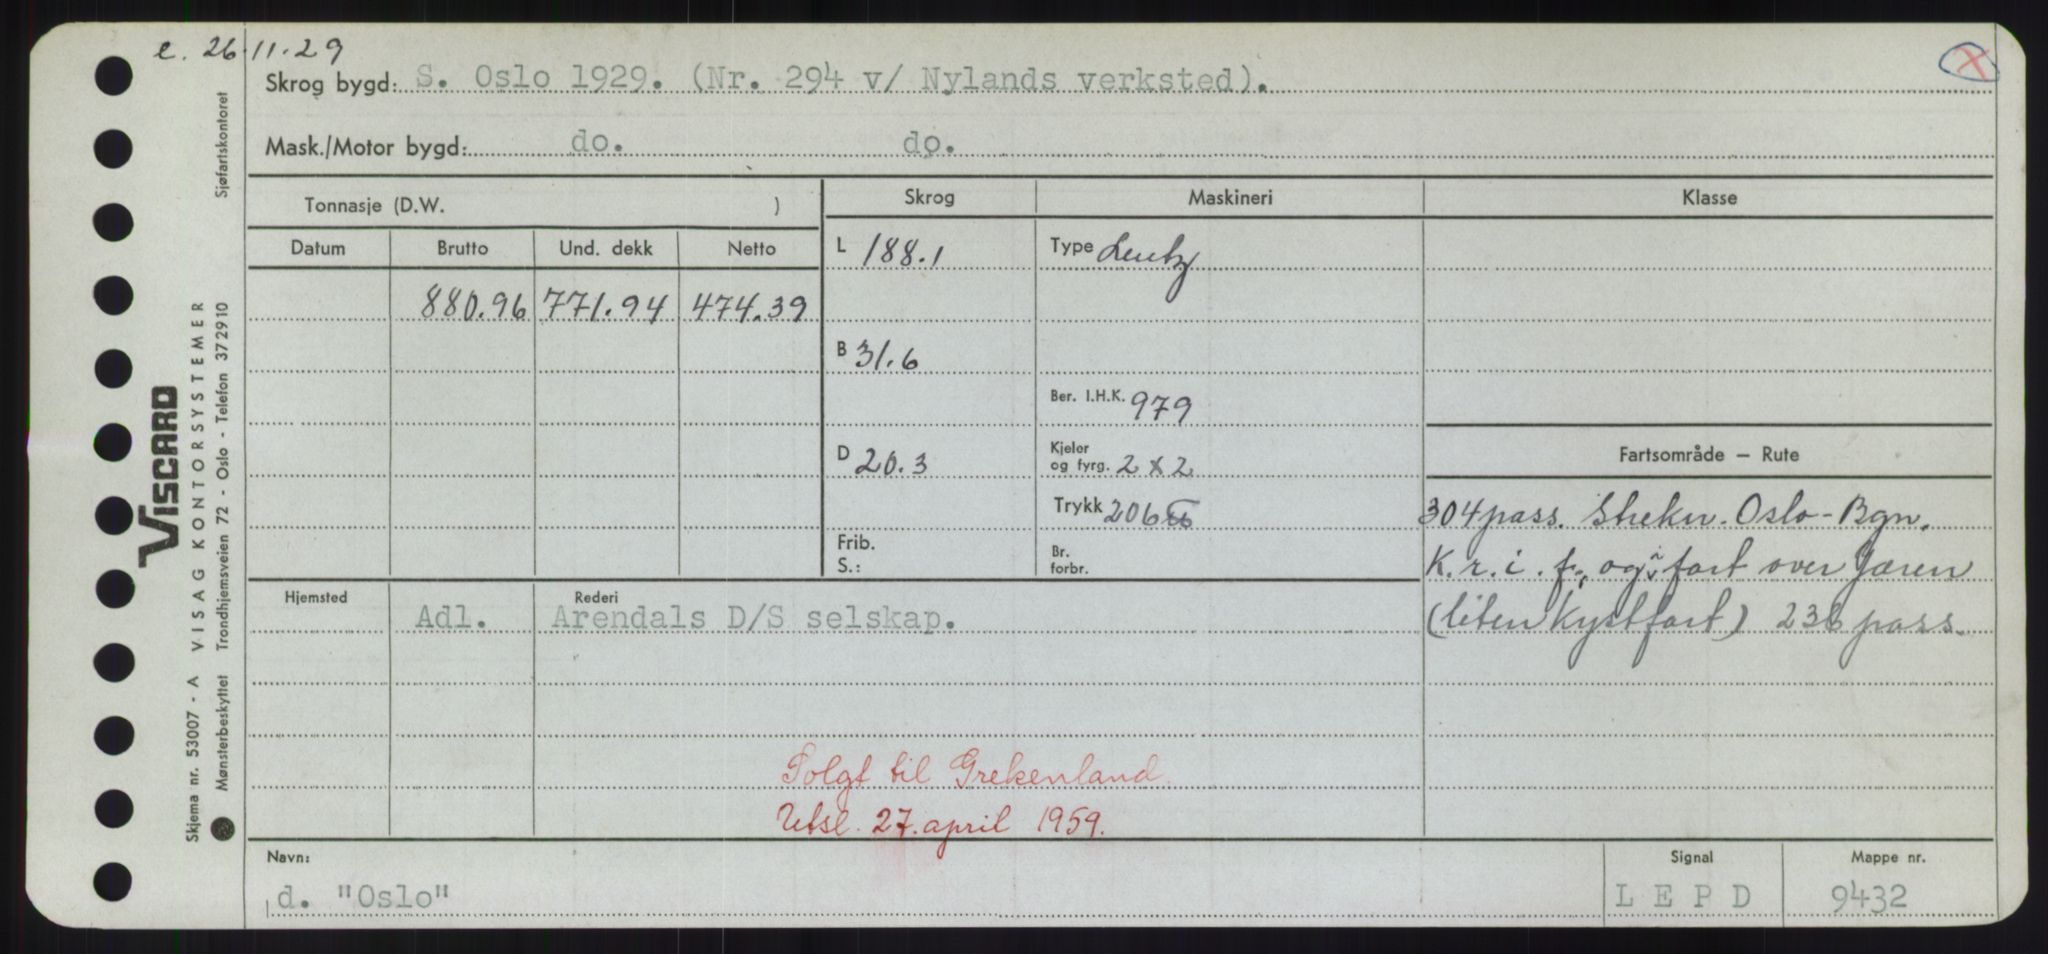 e. 26.11.29
Skrog bygd: S. Oslo 1929. (Nr. 294 v/ Nylands verksted).
Mask./Motor bygd: do. do.
Tonnasje (D.W. )
Skrog Maskineri Klasse
Datum Brutto Und. dekk Netto
L 188.1 Type Lentz
880.96 771.94 474.39
B 31.6
Ber. I.H.K. 979
D 20.3
Kjeler
og fyrg. 2 x 2
Fartsområde – Rute
Trykk 206 ℔
304 pass. strekn. Oslo-Bgn.
Frib.
S.:
Br.
forbr.
K.r.i.f., og i fart over Jæren
Hjemsted Adl.
Rederi Arendals D/S selskap.
(liten kystfart) 236 pass.
Solgt til Grekenland.
Utsl. 27. april 1959.
Navn: Signal Mappe nr.
d. "Oslo" L E P D 9432
VISCARD
VISAG KONTORSYSTEMER
Skjema nr. 53007 - A
Mønsterbeskyttet Trondhjemsveien 72 - Oslo - Telefon 372910 Sjøfartskontoret